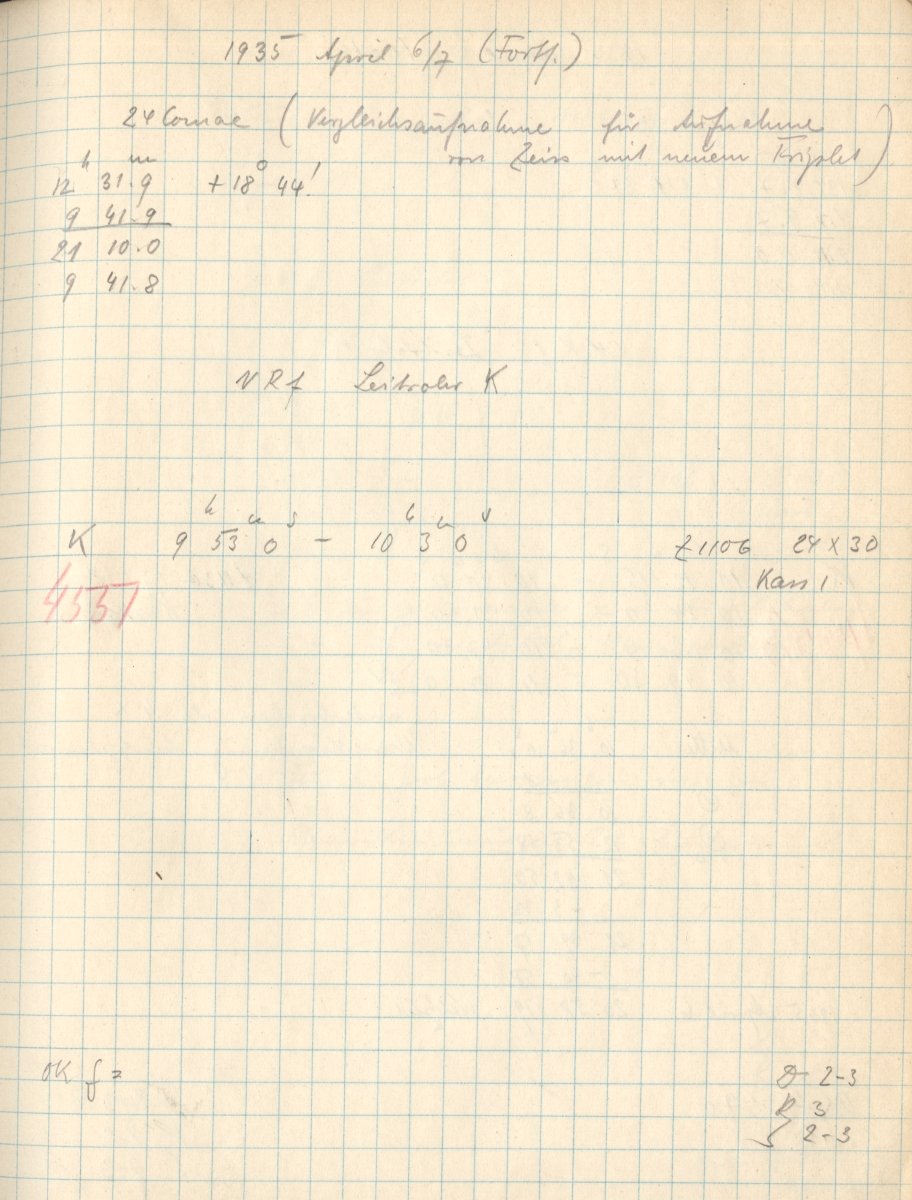 1935 April 6/7 (Forts.)
24 Comae (Vergleichsaufnahme für Aufnahme
von Zeiss mit neuem Triplet)
12 h 31 m .9 + 18° 44!
9 41.9
21 10.0
9 41.8
Leitrohr K
K 9 h 53 m 0 s – 10 h 3 m 0 s Z 1106 24 X 30
4551 Kass 1
OK f =
D 2-3
R 3
S 2-3